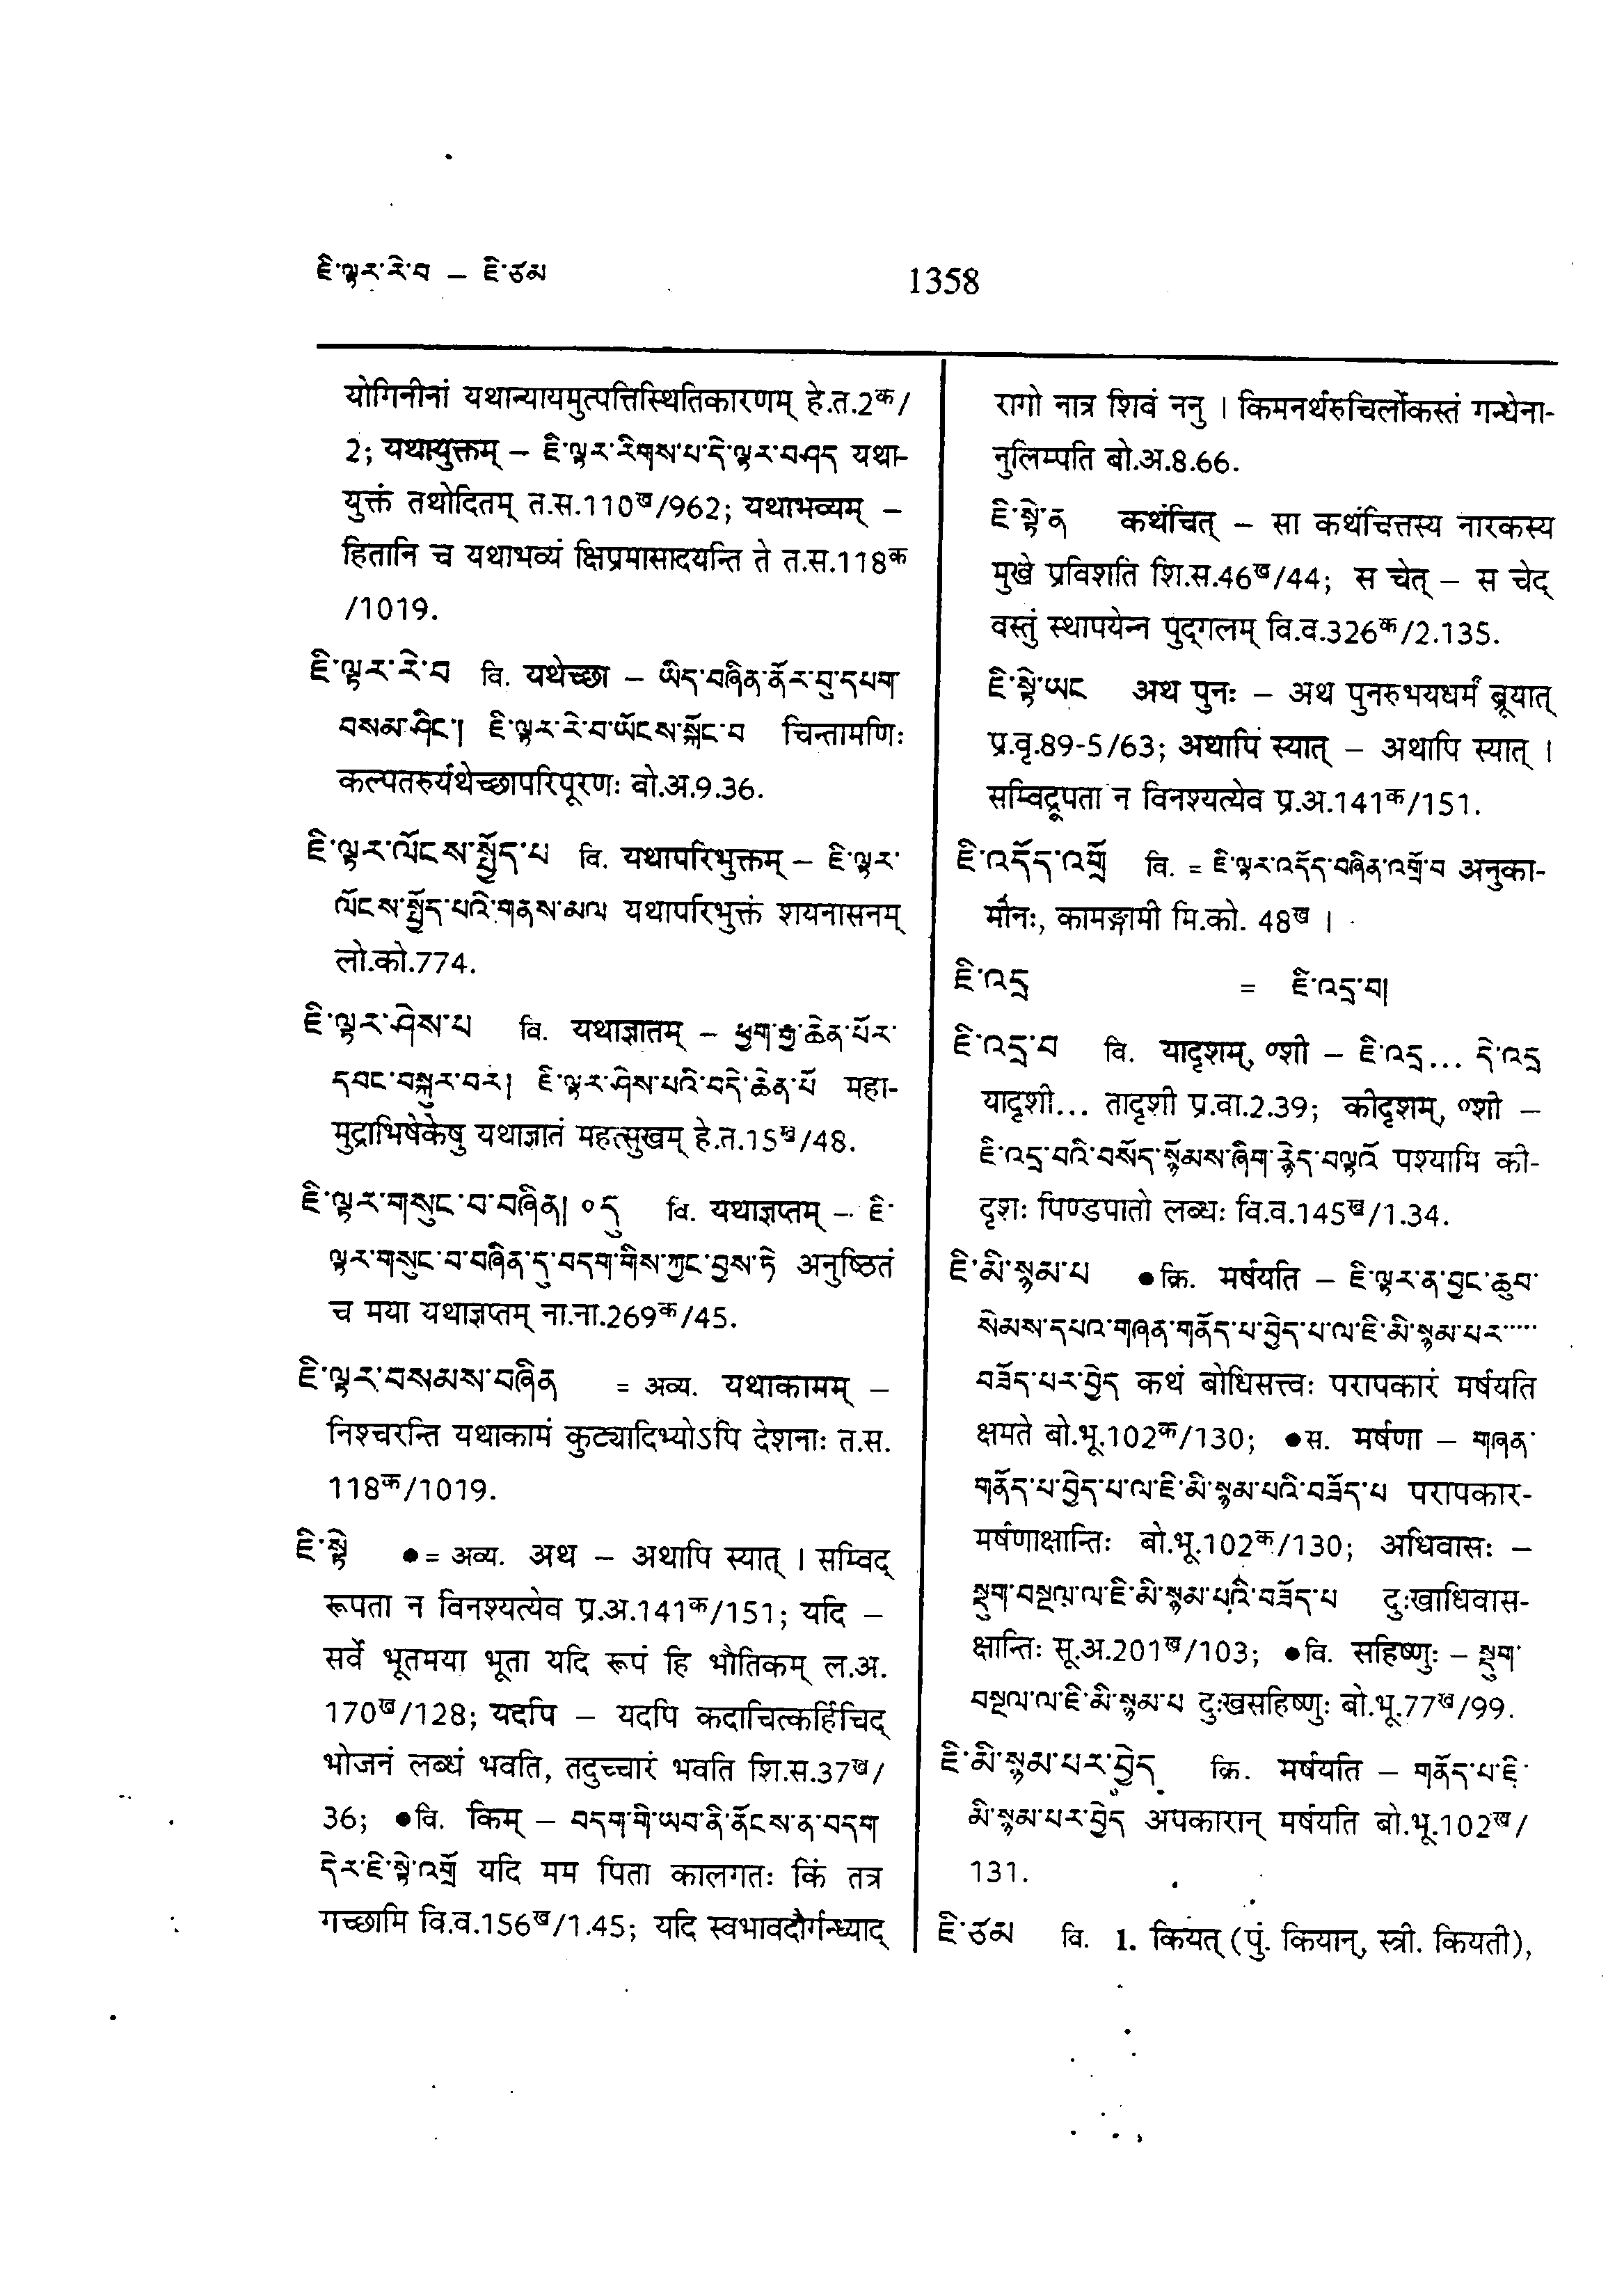 ཇི་ལྟར་རེ་བ – ཇི་ཙམ
1358
योगिनीनां यथान्यायमुत्पत्तिस्थितिकारणम् हे.त.2क/
2; यथायुक्तम् – ཇི་ལྟར་རིགས་པ་དེ་ལྟར་བཤད यथा-
युक्तं तथोदितम् त.स.110ख/962; यथाभव्यम् –
हितानि च यथाभव्यं क्षिप्रमासादयन्ति ते त.स.118क
/1019.
ཇི་ལྟར་རེ་བ वि. यथेच्छा – ཡིད་བཞིན་ནོར་བུ་དཔག
བསམ་ཤིང་། ཇི་ལྟར་རེ་བ་ཡོངས་སྐོང་བ चिन्तामणिः
कल्पतरुर्यथेच्छापरिपूरणः बो.अ.9.36.
ཇི་ལྟར་ལོངས་སྤྱོད་པ वि. यथापरिभुक्तम् – ཇི་ལྟར་
ལོངས་སྤྱོད་པའི་གནས་མལ यथापरिभुक्तं शयनासनम्
लो.को.774.
ཇི་ལྟར་ཤེས་པ वि. यथाज्ञातम् – ཕྱག་རྒྱ་ཆེན་པོར་
དབང་བསྐུར་བར། ཇི་ལྟར་ཤེས་པའི་བདེ་ཆེན་པོ महा-
मुद्राभिषेकेषु यथाज्ञातं महत्सुखम् हे.त.15ख/48.
ཇི་ལྟར་གསུང་བ་བཞིན། ०དུ वि. यथाज्ञप्तम् – ཇི་
ལྟར་གསུང་བ་བཞིན་དུ་བདག་གིས་ཀྱང་བྱས་ཏེ अनुष्ठितं
च मया यथाज्ञप्तम् ना.ना.269क/45.
ཇི་ལྟར་བསམས་བཞིན = अव्य. यथाकामम् –
निश्चरन्ति यथाकामं कुट्यादिभ्योऽपि देशनाः त.स.
118क/1019.
ཇི་སྟེ ●= अव्य. अथ – अथापि स्यात् । सम्विद्
रूपता न विनश्यत्येव प्र.अ.141क/151; यदि –
सर्वे भूतमया भूता यदि रूपं हि भौतिकम् ल.अ.
170ख/128; यदपि – यदपि कदाचित्कर्हिचिद्
भोजनं लब्धं भवति, तदुच्चारं भवति शि.स.37ख/
36; ●वि. किम् – བདག་གི་ཡབ་ནི་ནོངས་ན་བདག
དེར་ཇི་སྟེ་འགྲོ यदि मम पिता कालगतः किं तत्र
गच्छामि वि.व.156ख/1.45; यदि स्वभावदौर्गन्ध्याद्
रागो नात्र शिवं ननु । किमनर्थरुचिर्लोकस्तं गन्धेना-
नुलिम्पति बो.अ.8.66.
ཇི་སྟེ་ན कथंचित् – सा कथंचित्तस्य नारकस्य
मुखे प्रविशति शि.स.46ख/44; स चेत् – स चेद्
वस्तुं स्थापयेन्न पुद्गलम् वि.व.326क/2.135.
ཇི་སྟེ་ཡང अथ पुनः – अथ पुनरुभयधर्मं ब्रूयात्
प्र.वृ.89-5/63; अथापि स्यात् – अथापि स्यात् ।
सम्विद्रूपता न विनश्यत्येव प्र.अ.141क/151.
ཇི་འདོད་འགྲོ वि. = ཇི་ལྟར་འདོད་བཞིན་འགྲོ་བ अनुका-
मीनः, कामङ्गामी मि.को. 48ख ।
ཇི་འདྲ = ཇི་འདྲ་བ།
ཇི་འདྲ་བ वि. यादृशम्, ०शी – ཇི་འདྲ... དེ་འདྲ
यादृशी... तादृशी प्र.वा.2.39; कीदृशम्, ०शी –
ཇི་འདྲ་བའི་བསོད་སྙོམས་ཞིག་རྙེད་བལྟའོ पश्यामि की-
दृशः पिण्डपातो लब्धः वि.व.145ख/1.34.
ཇི་མི་སྙམ་པ ●क्रि. मर्षयति – ཇི་ལྟར་ན་བྱང་ཆུབ་
སེམས་དཔའ་གཞན་གནོད་པ་བྱེད་པ་ལ་ཇི་མི་སྙམ་པར་····
བཟོད་པར་བྱེད कथं बोधिसत्त्वः परापकारं मर्षयति
क्षमते बो.भू.102क/130; ●स. मर्षणा – གཞན་
གནོད་པ་བྱེད་པ་ལ་ཇི་མི་སྙམ་པའི་བཟོད་པ परापकार-
मर्षणाक्षान्तिः बो.भू.102क/130; अधिवासः –
སྡུག་བསྔལ་ལ་ཇི་མི་སྙམ་པའི་བཟོད་པ दुःखाधिवास-
क्षान्तिः सू.अ.201ख/103; ●वि. सहिष्णुः – སྡུག་
བསྔལ་ལ་ཇི་མི་སྙམ་པ दुःखसहिष्णुः बो.भू.77ख/99.
ཇི་མི་སྙམ་པར་བྱེད क्रि. मर्षयति – གནོད་པ་ཇི་
མི་སྙམ་པར་བྱེད अपकारान् मर्षयति बो.भू.102ख/
131.
ཇི་ཙམ वि. 1. कियत् (पुं. कियान्, स्त्री. कियती),